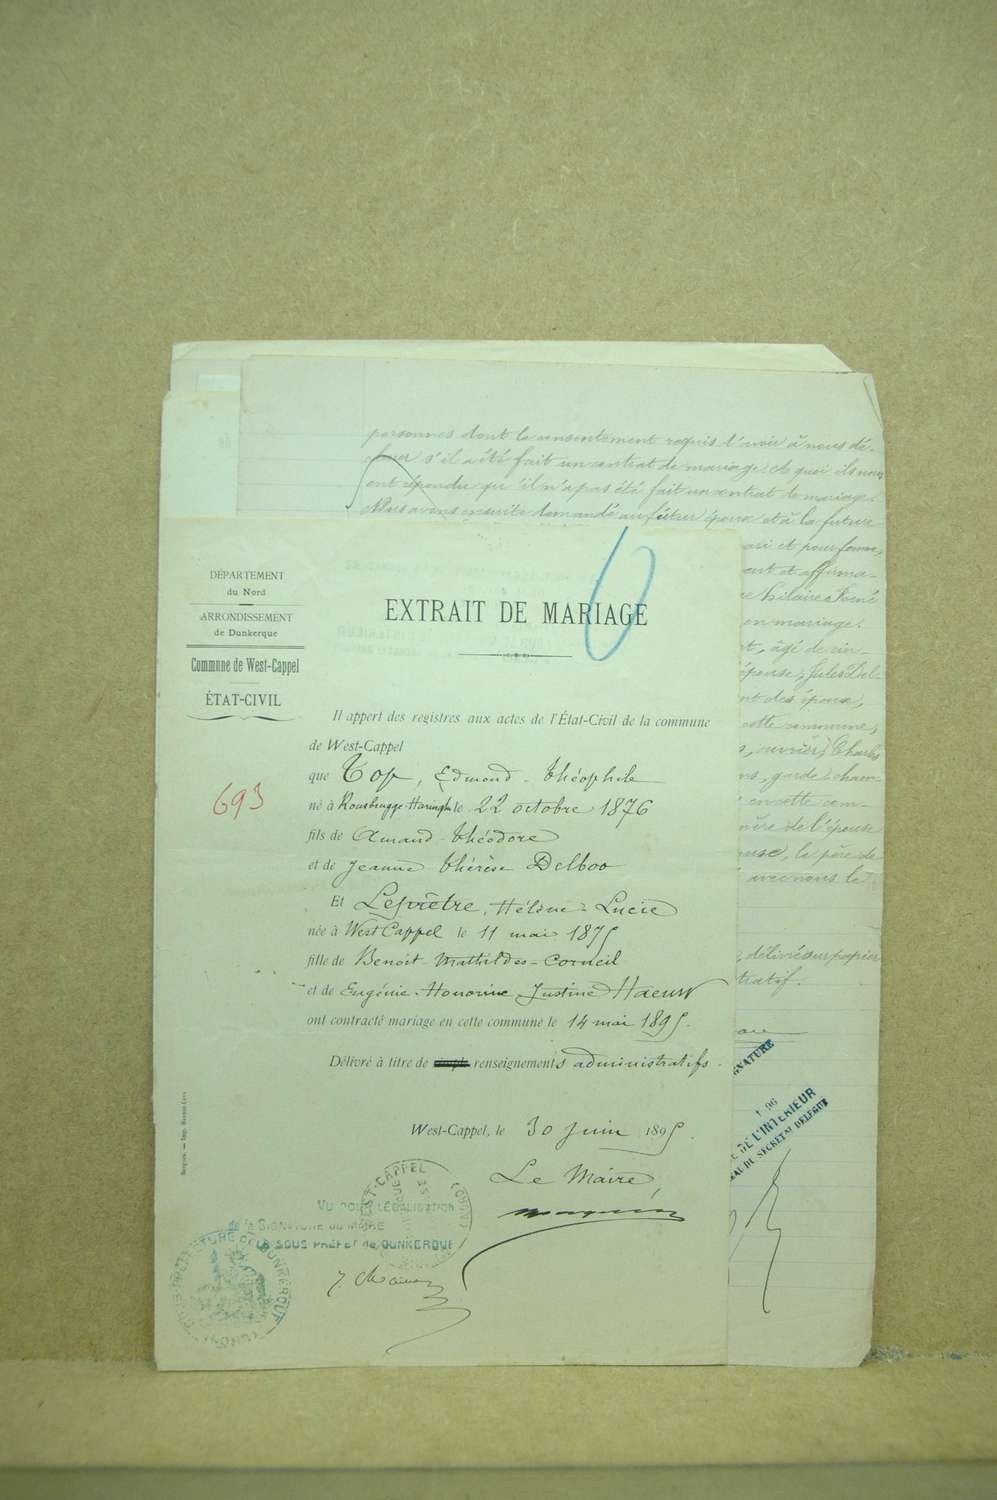 personnes dont le consentement requis d'avoir à nous dé-
clarer s'il a été fait un contrat de mariage. A quoi ils nous
ont répondu qu'il n'a pas été fait un contrat de mariage.
Nous avons ensuite demandé au futur époux et à la future
mari et pour femme,
ment et affirma-
Hilaire René
en mariage.
âgé de cin-
épouse, Jules Del-
des époux,
cette commune,
ouvrier, Charles
ans, garde cham-
en cette com-
mère de l'épouse
le père de
avec nous le
délivré sur papier
DÉPARTEMENT
du Nord
ARRONDISSEMENT
de Dunkerque
Commune de West-Cappel
ÉTAT-CIVIL
693
EXTRAIT DE MARIAGE
Il appert des registres aux actes de l'État-Civil de la commune
de West-Cappel
que Top, Edmond Théophile
né à Rousbrugge-Haringhe le 22 octobre 1876
fils de Amand Théodore
et de Jeanne Thérèse Delboo
Et Leprêtre, Hélène Lucie
née à West Cappel le 11 mai 1875
fille de Benoit-Mathildes-Corneil
et de Eugénie Honorine Justine Haeuw
ont contracté mariage en cette commune le 14 mai 1895.
Délivré à titre de simple renseignements administratifs.
West-Cappel, le 30 Juin 1895.
Le Maire,
VU POUR LÉGALISATION
de la SIGNATURE du MAIRE
LE SOUS PRÉFET de DUNKERQUE
WEST-CAPPEL
(NORD)
SOUS-PRÉFECTURE DE DUNKERQUE
(NORD)
DE L'INTÉRIEUR
DU SECRÉTAIRE DÉLÉGUÉ